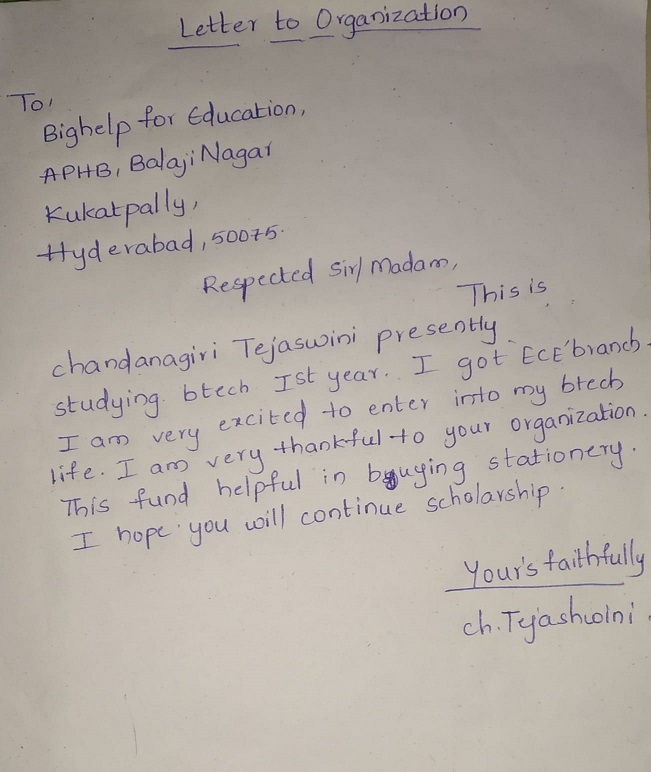 Letter to Organization
To,
Bighelp for Education,
APHB, Balaji Nagar
Kukatpally,
Hyderabad, 50075.
Respected Sir/Madam,
This is
chandanagiri Tejaswini presently
studying btech Ist year. I got "ECE" branch.
I am very excited to enter into my btech
life. I am very thankful to your organization.
This fund helpful in buying stationery.
I hope you will continue scholarship.
Your's faithfully
ch. Tejashwini.